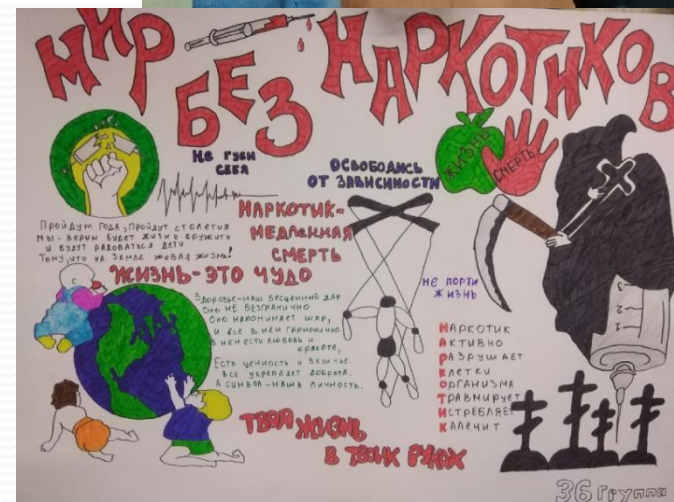 МИР
БЕЗ НАРКОТИКОВ
Не губи
себя
Освободись
от зависимости
ЖИЗНЬ
СМЕРТЬ
Пройдут года, пройдут столетия
Мы - верим будет жизнь кружить
и будут радоваться дети
Тому, что на Земле живая жизнь!
НАРКОТИК-
МЕДЛЕННАЯ
СМЕРТЬ
ЖИЗНЬ-ЭТО ЧУДО
Здоровье-наш бесценный дар
Оно не безгранично
Оно напоминает шар,
и всё в нём гармонично
В нём есть любовь и
красота,
Есть ценность и величие.
Все укрепляет доброта.
А символ-наша личность.
не порти
жизнь
Наркотик
Активно
Разрушает
Клетки
Организма
Травмирует
Истребляет
Калечит
3
2
1
ТВОЯ ЖИЗНЬ
В ТВОИХ РУКАХ
36 группа